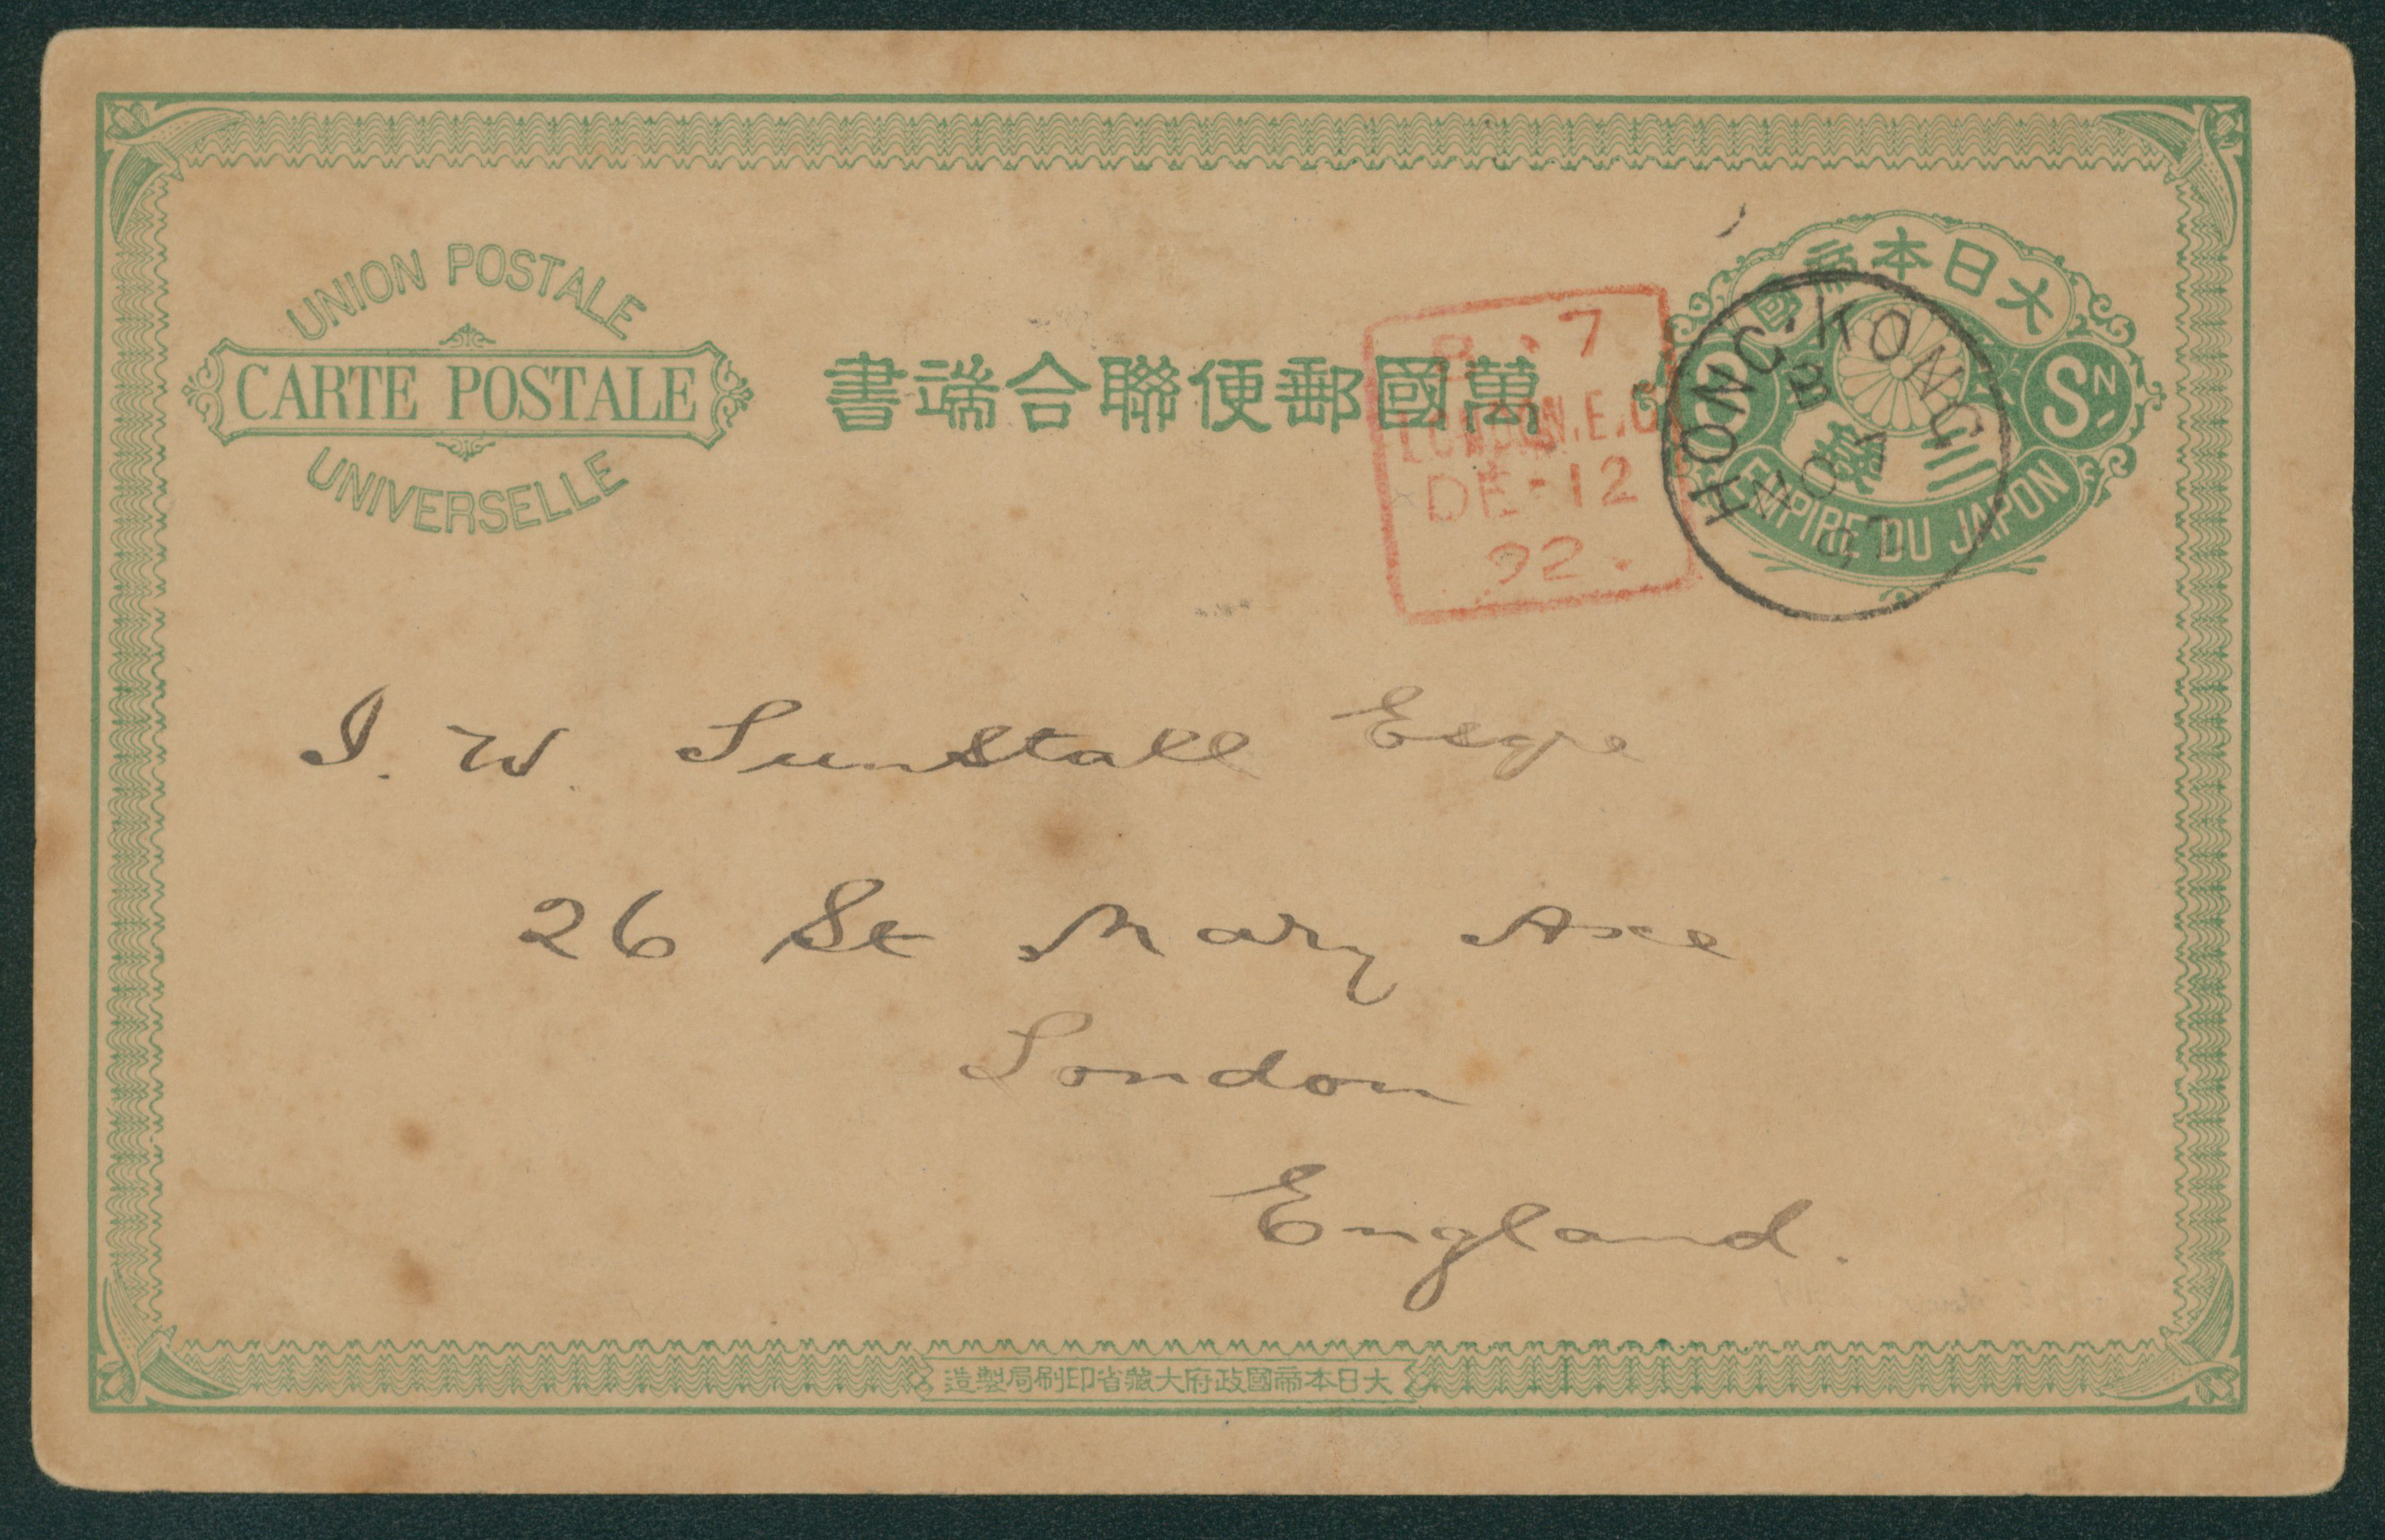 UNION POSTALE
CARTE POSTALE
UNIVERSELLE
書端合聯便郵國萬
國帝本日大
Sᴺ
EMPIRE DU JAPON
HONG·KONG
A
NO
92
7
LONDON.E.C
DE·12
92.
J. W. Tunstall Esqre
26 St Mary Axe
London
England.
造製局刷印省藏大府政國帝本日大